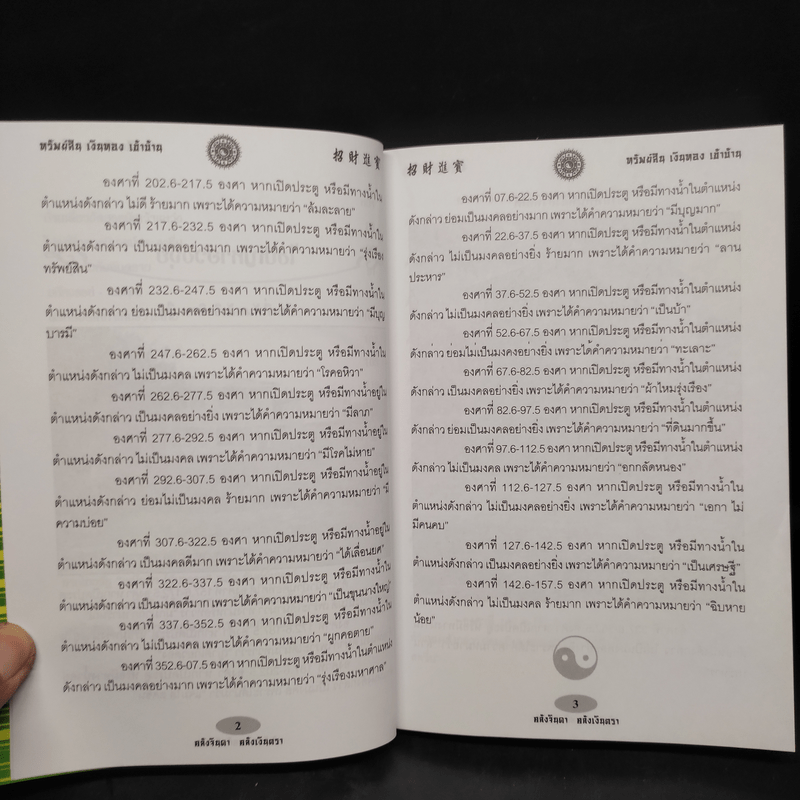 ทรัพย์สิน เงินทอง เข้าบ้าน
招財進寶
องศาที่ 202.6-217.5 องศา หากเปิดประตู หรือมีทางน้ำใน
ตำแหน่งดังกล่าว ไม่ดี ร้ายมาก เพราะได้คำความหมายว่า “ล้มละลาย”
องศาที่ 217.6-232.5 องศา หากเปิดประตู หรือมีทางน้ำใน
ตำแหน่งดังกล่าว เป็นมงคลอย่างมาก เพราะได้คำความหมายว่า “รุ่งเรือง
ทรัพย์สิน”
องศาที่ 232.6-247.5 องศา หากเปิดประตู หรือมีทางน้ำใน
ตำแหน่งดังกล่าว ย่อมเป็นมงคลอย่างมาก เพราะได้คำความหมายว่า “มีบุญ
บารมี”
องศาที่ 247.6-262.5 องศา หากเปิดประตู หรือมีทางน้ำใน
ตำแหน่งดังกล่าว ไม่เป็นมงคล เพราะได้คำความหมายว่า “โรคอหิวา”
องศาที่ 262.6-277.5 องศา หากเปิดประตู หรือมีทางน้ำอยู่ใน
ตำแหน่งดังกล่าว เป็นมงคลอย่างยิ่ง เพราะได้คำความหมายว่า “มีลาภ”
องศาที่ 277.6-292.5 องศา หากเปิดประตู หรือมีทางน้ำอยู่ใน
ตำแหน่งดังกล่าว ไม่เป็นมงคล เพราะได้คำความหมายว่า “มีโรคไม่หาย”
องศาที่ 292.6-307.5 องศา หากเปิดประตู หรือมีทางน้ำอยู่ใน
ตำแหน่งดังกล่าว ย่อมไม่เป็นมงคล ร้ายมาก เพราะได้คำความหมายว่า “มี
ความบ่อย”
องศาที่ 307.6-322.5 องศา หากเปิดประตู หรือมีทางน้ำอยู่ใน
ตำแหน่งดังกล่าว เป็นมงคลดีมาก เพราะได้คำความหมายว่า “ได้เลื่อนยศ”
องศาที่ 322.6-337.5 องศา หากเปิดประตู หรือมีทางน้ำใน
ตำแหน่งดังกล่าว เป็นมงคลดีมาก เพราะได้คำความหมายว่า “เป็นขุนนางใหญ่”
องศาที่ 337.6-352.5 องศา หากเปิดประตู หรือมีทางน้ำใน
ตำแหน่งดังกล่าว ไม่เป็นมงคล เพราะได้คำความหมายว่า “ผูกคอตาย”
องศาที่ 352.6-07.5 องศา หากเปิดประตู หรือมีทางน้ำในตำแหน่ง
ดังกล่าว เป็นมงคลอย่างมาก เพราะได้คำความหมายว่า “รุ่งเรืองมหาศาล”
2
พลิกจินดา พลิกเงินตรา
招財進寶
ทรัพย์สิน เงินทอง เข้าบ้าน
องศาที่ 07.6-22.5 องศา หากเปิดประตู หรือมีทางน้ำในตำแหน่ง
ดังกล่าว ย่อมเป็นมงคลอย่างมาก เพราะได้คำความหมายว่า “มีบุญมาก”
องศาที่ 22.6-37.5 องศา หากเปิดประตู หรือมีทางน้ำในตำแหน่ง
ดังกล่าว ไม่เป็นมงคลอย่างยิ่ง ร้ายมาก เพราะได้คำความหมายว่า “ลาน
ประหาร”
องศาที่ 37.6-52.5 องศา หากเปิดประตู หรือมีทางน้ำในตำแหน่ง
ดังกล่าว ไม่เป็นมงคลอย่างยิ่ง เพราะได้คำความหมายว่า “เป็นบ้า”
องศาที่ 52.6-67.5 องศา หากเปิดประตู หรือมีทางน้ำในตำแหน่ง
ดังกล่าว ย่อมไม่เป็นมงคงอย่างยิ่ง เพราะได้คำความหมายว่า “ทะเลาะ”
องศาที่ 67.6-82.5 องศา หากเปิดประตู หรือมีทางน้ำในตำแหน่ง
ดังกล่าว เป็นมงคลอย่างยิ่ง เพราะได้คำความหมายว่า “ผ้าไหมรุ่งเรือง”
องศาที่ 82.6-97.5 องศา หากเปิดประตู หรือมีทางน้ำในตำแหน่ง
ดังกล่าว ย่อมเป็นมงคลอย่างยิ่ง เพราะได้คำความหมายว่า “ที่ดินมากขึ้น”
องศาที่ 97.6-112.5 องศา หากเปิดประตู หรือมีทางน้ำในตำแหน่ง
ดังกล่าว ไม่เป็นมงคลอย่างยิ่ง เพราะได้คำความหมายว่า “อกกลัดหนอง”
องศาที่ 112.6-127.5 องศา หากเปิดประตู หรือมีทางน้ำใน
ตำแหน่งดังกล่าว ไม่เป็นมงคลอย่างยิ่ง เพราะได้คำความหมายว่า “เอกา ไม่
มีคนคบ”
องศาที่ 127.6-142.5 องศา หากเปิดประตู หรือมีทางน้ำใน
ตำแหน่งดังกล่าว เป็นมงคลอย่างยิ่ง เพราะได้คำความหมายว่า “เป็นเศรษฐี”
องศาที่ 142.6-157.5 องศา หากเปิดประตู หรือมีทางน้ำใน
ตำแหน่งดังกล่าว ไม่เป็นมงคล ร้ายมาก เพราะได้คำความหมายว่า “ฉิบหาย
น้อย”
3
พลิกจินดา พลิกเงินตรา